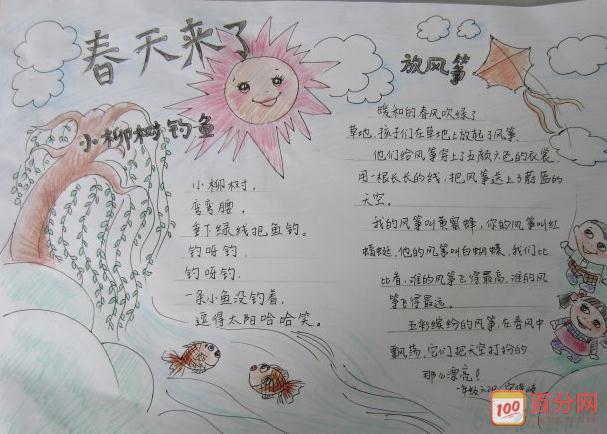 春天来了
小柳树钓鱼
小柳树，
弯弯腰，
垂下绿线把鱼钓。
钓呀钓，
钓呀钓，
一条小鱼没钓着，
逗得太阳哈哈笑。
放风筝
暖和的春风吹绿了
草地，孩子们在草地上放起了风筝。
他们给风筝穿上了五颜六色的衣裳，
用一根长长的线，把风筝送上了蔚蓝的
天空。
我的风筝叫黄蜜蜂，你的风筝叫红
蜻蜓，他的风筝叫白蝴蝶，我们比
比看，谁的风筝飞得最高，谁的风
筝飞得最远。
五彩缤纷的风筝，在春风中
飘荡，它们把天空打扮的
那么漂亮！
100
百分网